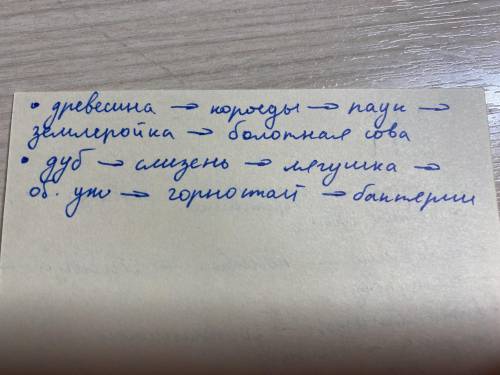 • древесина → короеды → паук →
землеройка → болотная сова
• дуб → слизень → лягушка →
об. уж → горностай → бактерии